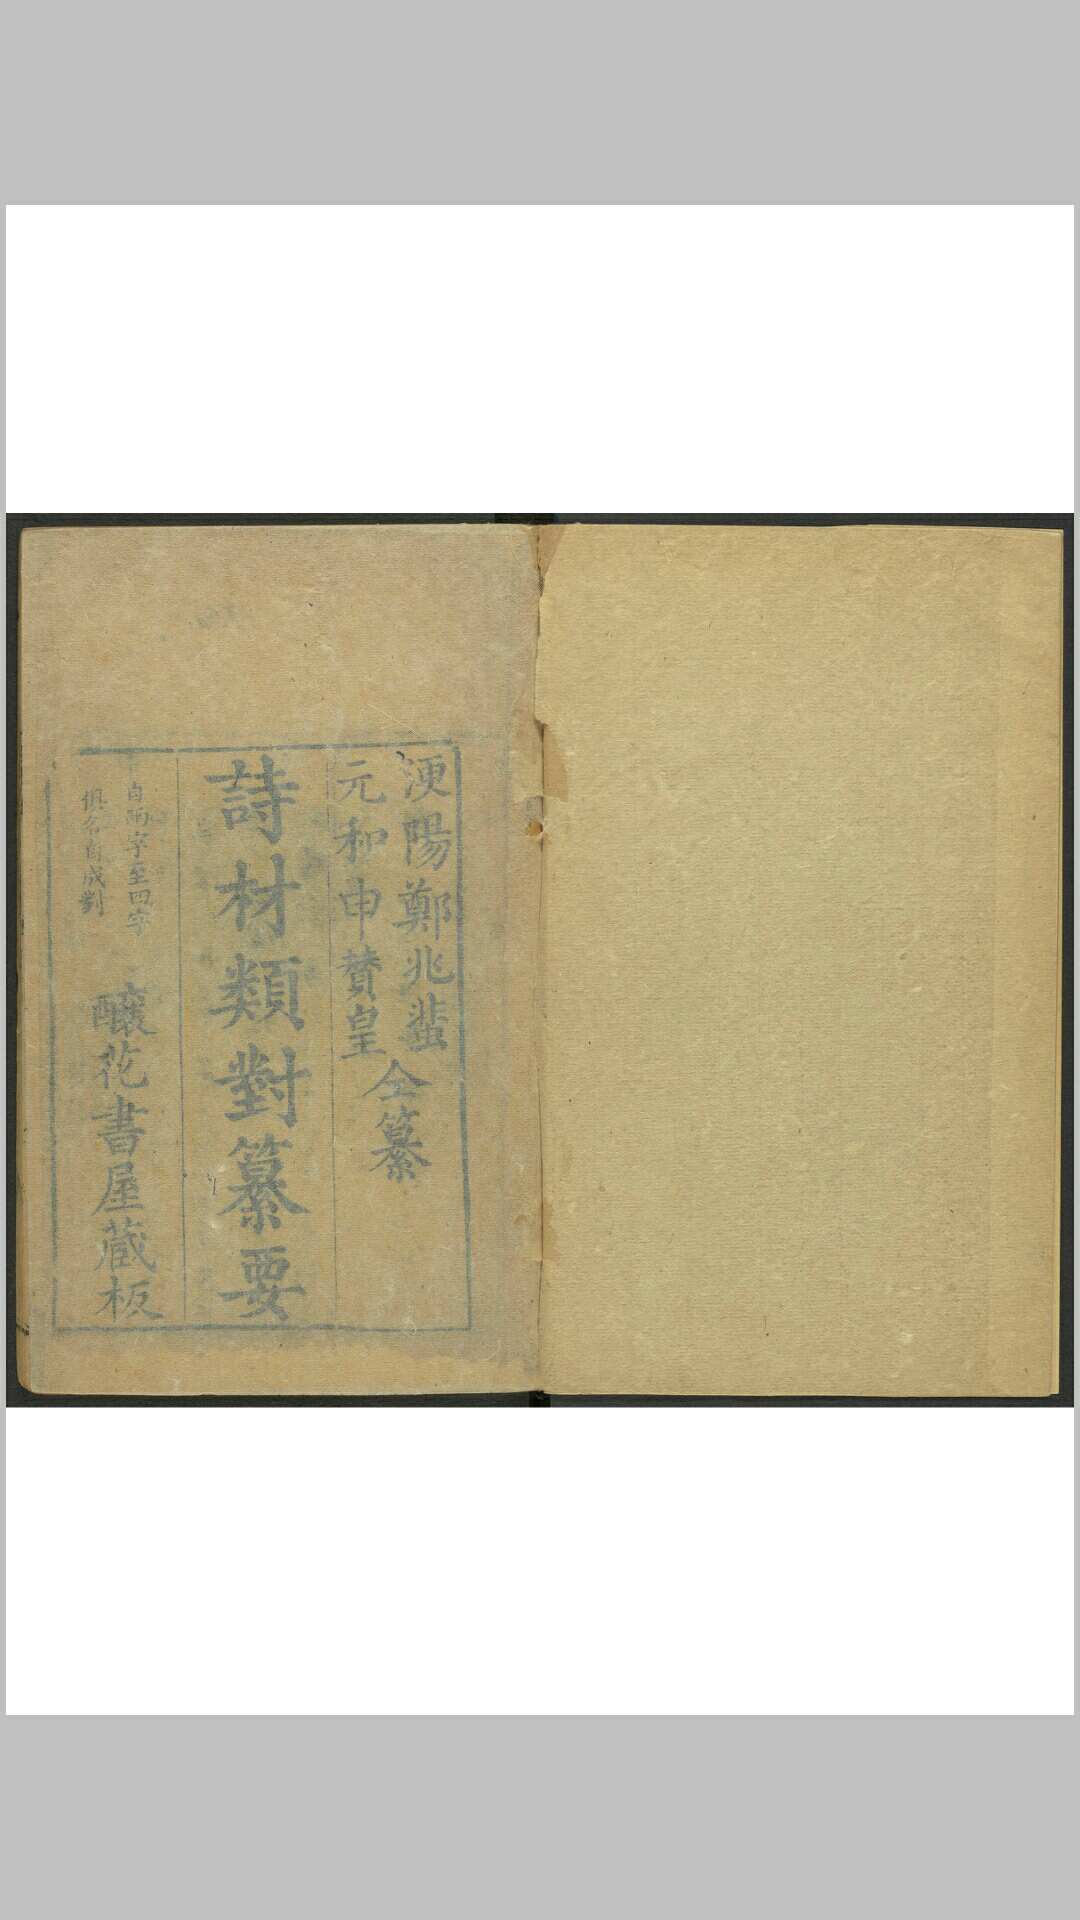 浭陽鄭兆蜚
元和申贊皇
仝纂
詩材類對纂要
自兩字至四字
俱各自成對
釀花書屋藏板